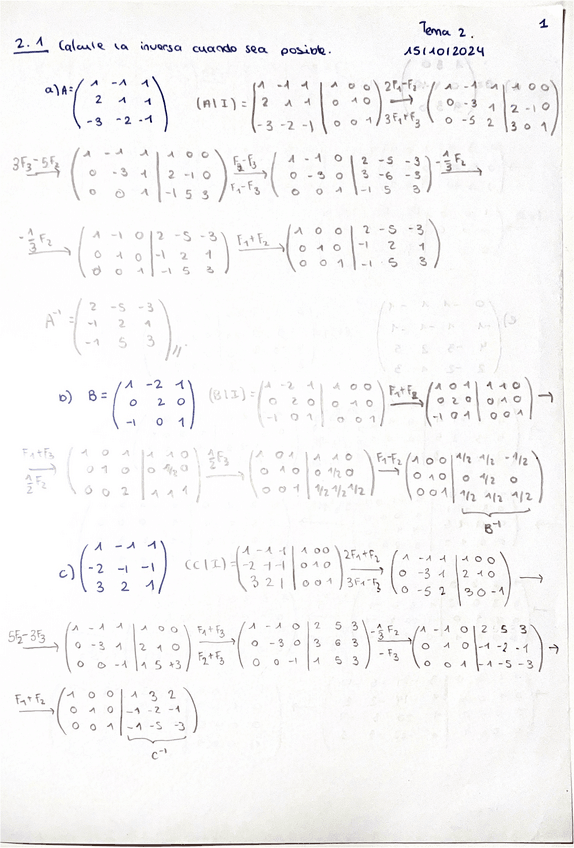 Tema 2. 1
2.1 Calcule la inversa cuando sea posible. 15/10/2024
a) A = (1 -1 1; 2 1 1; -3 -2 -1) (A|I) = (1 -1 1 | 1 0 0; 2 1 1 | 0 1 0; -3 -2 -1 | 0 0 1) 2F₁-F₂ 3F₁+F₃ → (1 -1 1 | 1 0 0; 0 -3 1 | 2 -1 0; 0 -5 2 | 3 0 1)
3F₃-5F₂ → (1 -1 1 | 1 0 0; 0 -3 1 | 2 -1 0; 0 0 1 | -1 5 3) F₂-F₃ F₁-F₃ → (1 -1 0 | 2 -5 -3; 0 -3 0 | 3 -6 -3; 0 0 1 | -1 5 3) -1/3 F₂ →
-1/3 F₂ → (1 -1 0 | 2 -5 -3; 0 1 0 | -1 2 1; 0 0 1 | -1 5 3) F₁+F₂ → (1 0 0 | 2 -5 -3; 0 1 0 | -1 2 1; 0 0 1 | -1 5 3)
A⁻¹ = (2 -5 -3; -1 2 1; -1 5 3)//.
b) B = (1 -2 1; 0 2 0; -1 0 1) (B|I) = (1 -2 1 | 1 0 0; 0 2 0 | 0 1 0; -1 0 1 | 0 0 1) F₁+F₂ → (1 0 1 | 1 1 0; 0 2 0 | 0 1 0; -1 0 1 | 0 0 1) →
F₁+F₃ 1/2 F₂ → (1 0 1 | 1 1 0; 0 1 0 | 0 1/2 0; 0 0 2 | 1 1 1) 1/2 F₃ → (1 0 1 | 1 1 0; 0 1 0 | 0 1/2 0; 0 0 1 | 1/2 1/2 1/2) F₁-F₂ → (1 0 0 | 1/2 1/2 -1/2; 0 1 0 | 0 1/2 0; 0 0 1 | 1/2 1/2 1/2)
B⁻¹
c) (1 -1 1; -2 -1 -1; 3 2 1) (C|I) = (1 -1 -1 | 1 0 0; -2 -1 -1 | 0 1 0; 3 2 1 | 0 0 1) 2F₁+F₂ 3F₁-F₃ → (1 -1 1 | 1 0 0; 0 -3 1 | 2 1 0; 0 -5 2 | 3 0 -1) →
5F₂-3F₃ → (1 -1 1 | 1 0 0; 0 -3 1 | 2 1 0; 0 0 -1 | 1 5 +3) F₁+F₃ F₂+F₃ → (1 -1 0 | 2 5 3; 0 -3 0 | 3 6 3; 0 0 -1 | 1 5 3) -1/3 F₂ -F₃ → (1 -1 0 | 2 5 3; 0 1 0 | -1 -2 -1; 0 0 1 | -1 -5 -3) →
F₁+F₂ → (1 0 0 | 1 3 2; 0 1 0 | -1 -2 -1; 0 0 1 | -1 -5 -3)
C⁻¹